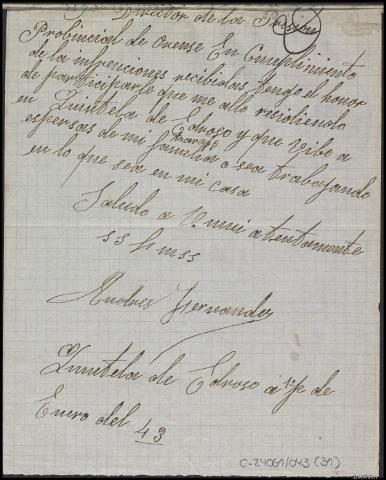 Sr Director de la Prision
Probincial de Orense En Cumplimiento
de la intrenciones recibidas tengo el honor
de participarle que me allo residiendo
en Quintela de Edroso y que vibo a
espersas de mi familia o sea trabajando
en lo que sea en mi casa
Saludo a V. muui atentamente
s s q m s s
Andres Fernandez
Quintela de Edroso a 1º de
Enero del 43
C-24061/043 (31)